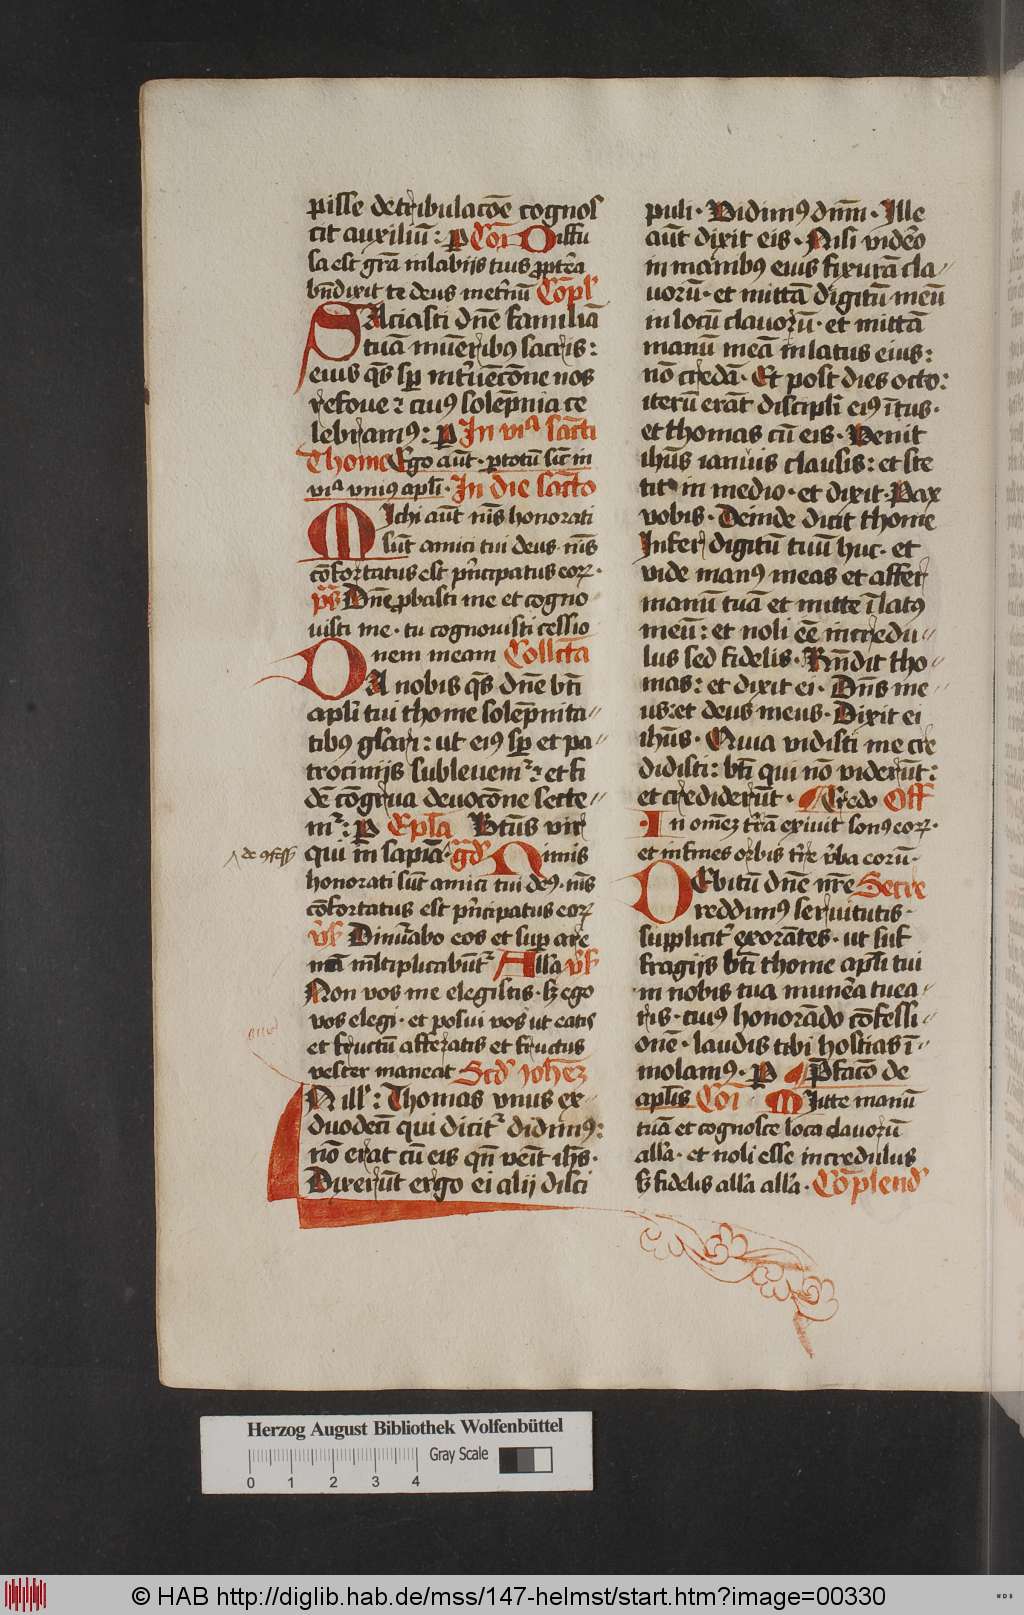 pisse de tribulacōe cognos
cit auxiliū: P Cōi Diffu
sa est grā in labijs tuis ꝓptēa
bn̄dixit te deus in et̓nū Cōpl̓
SAciasti dn̄e familiā
tuā mūeribꝰ sacris:
eius q̄s sp̄ int̓uēcōne nos
refoue ꝛ ciuꝰ solēpnia ce
lebramꝰ: P In viᵃ sācti
Thome Ego aūt. p totū sic̄ in
viᵃ vniꝰ apl̄i. In die sācto
MIchi aūt nīs honorati
sūt amici tui deus. nīs
cōfortatus est pn̓cipatus eoꝝ.
p̄s Dn̄e ꝓbasti me et cogno
uisti me. tu cognouisti cessio
nem meam Collc̄ta
DA nobis q̄s dn̄e bt̄i
apl̄i tui thome solēpnita//
tibꝰ gl̄ari: ut eiꝰ sp̄ et pa//
trocinijs subleuemᷣ: et fi
dē cōgrua deuocōne secte//
mᷣ: P Epl̄a Bt̄us vir
qui īn sapiā. gᷓd̓ Nimis
de ꝯfess̓
honorati sūt amici tui deꝰ. nīs
cōfortatus est pn̓cipatus eoꝝ
v̓s̓ Dinūabo eos et sup are
nā ml̄tiplicabūtᷣ All̓a v̓s̓
Non vos me elegistis. sꝫ ego
vos elegi. et posui vos ut eatis
et fructū afferatis et fructus
vester maneat Scd̓ ioh̄eꝫ
IN ill̓: Thomas vnus ex
duodecī qui dicitᷣ didimꝰ:
nō erat cū eis qn̄ vēit ih̄s.
Dixerūt ergo ei alij disci
puli. Vidimꝰ dn̄m. Ille
aūt dixit eis. Nisi videro
in manibꝰ eius fixurā cla//
uorū. et mittā digitū meū
in locū clauorū. et mittā
manū meā in latus eius:
nō credā. Et post dies octo:
iterū erāt discipl̄i eiꝰ ītus.
et thomas cū eis. Venit
ih̄us ianuis clausis: et ste
tit in medio. et dixit. Pax
vobis. Deinde dicit thome
Infer digitū tuū huc. et
vide manꝰ meas et affer
manū tuā et mitte ī latꝰ
meū: et noli ēē incredu//
lus sed fidelis. Rn̄dit tho//
mas: et dixit ei. Dn̄s me//
us: et deus meus. Dixit ei
ih̄us. Quia vidisti me cre
didisti: bt̄i qui nō viderūt:
et crediderūt. Credo Off
In om̄eꝫ t̓rā exiuit sonꝰ eoꝝ.
et in fines orbis t̓re v̓ba eorū.
DEbitū dn̄e nr̄e Secre
reddimꝰ seruitutis.
supplicit̓ exorātes. ut suf
fragijs bt̄i thome apl̄i tui
in nobis tua munēa tuea//
ris. cuiꝰ honorādo cōfessi//
onē. laudis tibi hostias ī//
molamꝰ. P P̄facō de
apl̄is Cōi Mitte manū
tuā et cognosce loca clauorū
all̓a. et noli esse incredulus
sꝫ fidelis all̓a all̓a. Cōplend̓
Herzog August Bibliothek Wolfenbüttel
0 1 2 3 4 Gray Scale
© HAB http://diglib.hab.de/mss/147-helmst/start.htm?image=00330